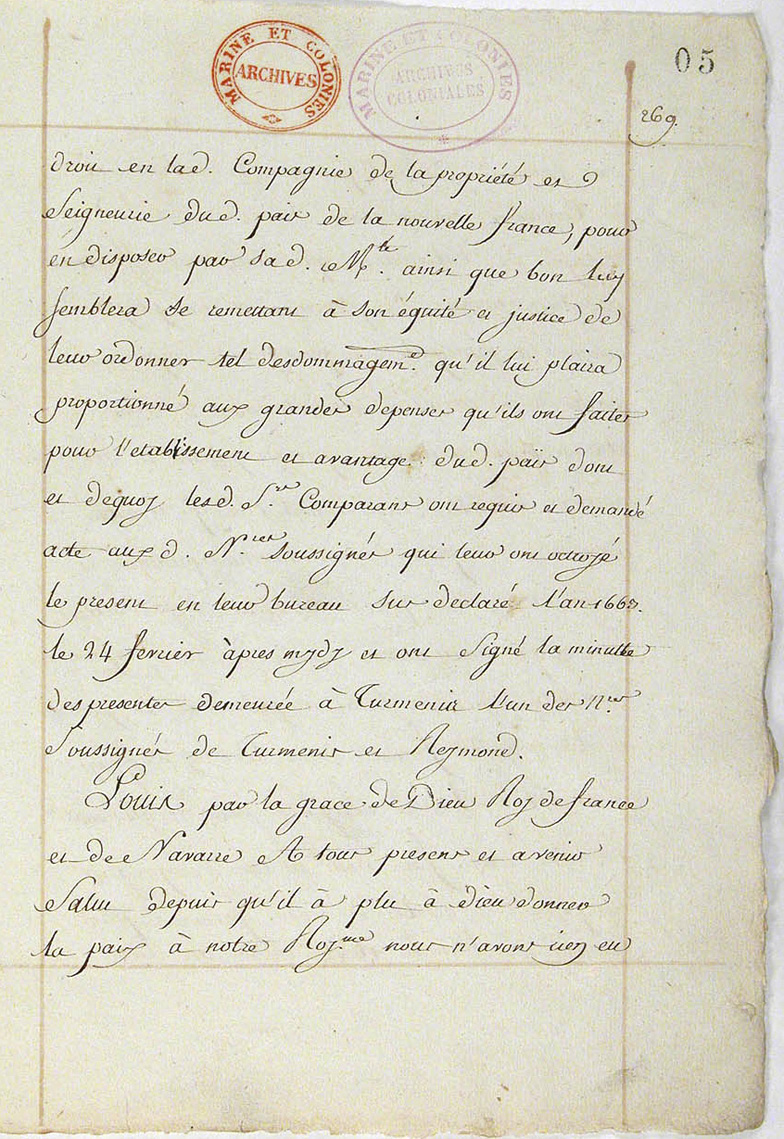 MARINE ET COLONIES
ARCHIVES
MARINE ET COLONIES
ARCHIVES
COLONIALES
05
269.
droit en lad. Compagnie de la propriété et
Seigneurie dud. pais de la nouvelle france, pour
en disposer par sad. M.te ainsi que bon luy
semblera se remettant à son équité et justice de
leur ordonner tel desdommagem.t qu'il lui plaira
proportionné aux grandes depenses qu'ils ont faites
pour l'etablissement et avantage dud. païs dont
et dequoy lesd. S.rs Comparans ont requis et demandé
acte aux d. N.res soussignés qui leur ont octroyé
le present en leur bureau sus declaré l'an 1663.
le 24 fevrier àpres mydy et ont Signé la minutte
des presentes demeurée à Turmenis l'un des N.res
Soussignés de Turmenis et Reymond.
Louis par la grace de Dieu Roy de france
et de Navarre A tous presens et avenir
Salut depuis qu'il à plu à Dieu donner
la paix à notre Roy.me nous n'avons rien eu